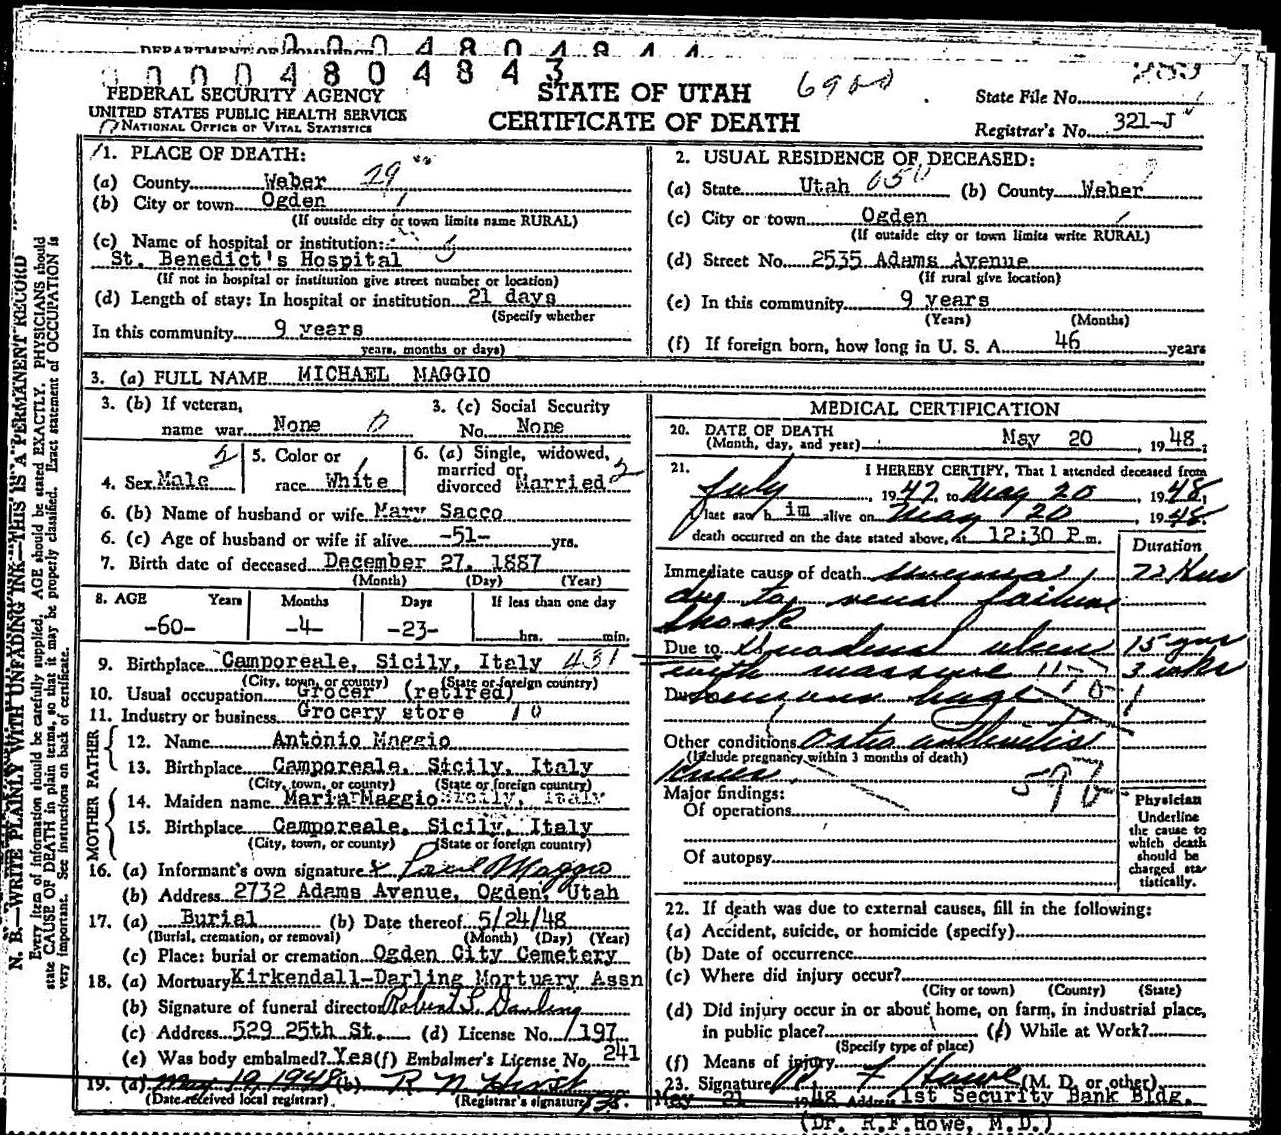 DEPARTMENT OF COMMERCE 0 0 0 4 8 0 4 8 4 4
0 0 0 0 4 8 0 4 8 4 3
FEDERAL SECURITY AGENCY
UNITED STATES PUBLIC HEALTH SERVICE
NATIONAL OFFICE OF VITAL STATISTICS
STATE OF UTAH
CERTIFICATE OF DEATH
State File No.
Registrar's No. 321-J
1. PLACE OF DEATH:
(a) County Weber 29
(b) City or town Ogden
(If outside city or town limits name RURAL)
(c) Name of hospital or institution:
St. Benedict's Hospital
(If not in hospital or institution give street number or location)
(d) Length of stay: In hospital or institution 21 days
(Specify whether
In this community 9 years
years, months or days)
2. USUAL RESIDENCE OF DECEASED:
(a) State Utah 650 (b) County Weber
(c) City or town Ogden
(If outside city or town limits write RURAL)
(d) Street No. 2535 Adams Avenue
(If rural give location)
(e) In this community 9 years
(Years) (Months)
(f) If foreign born, how long in U. S. A. 46 years
3. (a) FULL NAME MICHAEL MAGGIO
3. (b) If veteran, name war None 0
3. (c) Social Security No. None
4. Sex Male 2
5. Color or race White 1
6. (a) Single, widowed, married or divorced Married 2
6. (b) Name of husband or wife Mary Sacco
6. (c) Age of husband or wife if alive -51- yrs.
7. Birth date of deceased December 27, 1887
(Month) (Day) (Year)
8. AGE Years Months Days If less than one day
-60- -4- -23- hrs. min.
9. Birthplace Camporeale, Sicily, Italy 431
(City, town, or county) (State or foreign country)
10. Usual occupation Grocer (retired)
11. Industry or business Grocery store 10
FATHER
12. Name Antonio Maggio
13. Birthplace Camporeale, Sicily, Italy
(City, town, or county) (State or foreign country)
MOTHER
14. Maiden name Maria Maggio Sicily, Italy
15. Birthplace Camporeale, Sicily, Italy
(City, town, or county) (State or foreign country)
16. (a) Informant's own signature x Paul Maggio
(b) Address 2732 Adams Avenue, Ogden, Utah
17. (a) Burial (b) Date thereof 5/24/48
(Burial, cremation, or removal) (Month) (Day) (Year)
(c) Place: burial or cremation Ogden City Cemetery
18. (a) Mortuary Kirkendall-Darling Mortuary Assn
(b) Signature of funeral director Robert L. Darling
(c) Address 529 25th St. (d) License No. 197
(e) Was body embalmed? Yes (f) Embalmer's License No. 241
19. (a) May 19, 1948 (b) R N Hirst
(Date received local registrar) (Registrar's signature)
MEDICAL CERTIFICATION
20. DATE OF DEATH May 20, 1948;
(Month, day, and year)
21. I HEREBY CERTIFY, That I attended deceased from
July, 1947 to May 20, 1948,
I last saw h im alive on May 20, 1948.
death occurred on the date stated above, at 12:30 P m.
Duration
Immediate cause of death Uremia 72 Hrs
due to renal failure
Shock
Due to Duodenal ulcer 15 yrs
with massive 3 wks
Due
Other conditions Osteo arthritis
(Include pregnancy within 3 months of death)
Knees.
Major findings:
Of operations
Of autopsy
Physician
Underline
the cause to
which death
should be
charged sta-
tistically.
22. If death was due to external causes, fill in the following:
(a) Accident, suicide, or homicide (specify)
(b) Date of occurrence
(c) Where did injury occur?
(City or town) (County) (State)
(d) Did injury occur in or about home, on farm, in industrial place,
in public place? (e) While at Work?
(Specify type of place)
(f) Means of injury
23. Signature Howe (M. D. or other)
May 21 1948 Address 1st Security Bank Bldg.
(Dr. R.F.Howe, M.D.)
N. B.—WRITE PLAINLY WITH UNFADING INK—THIS IS A PERMANENT RECORD
Every item of information should be carefully supplied. AGE should be stated EXACTLY. PHYSICIANS should
state CAUSE OF DEATH in plain terms, so that it may be properly classified. Exact statement of OCCUPATION is
very important. See instructions on back of certificate.